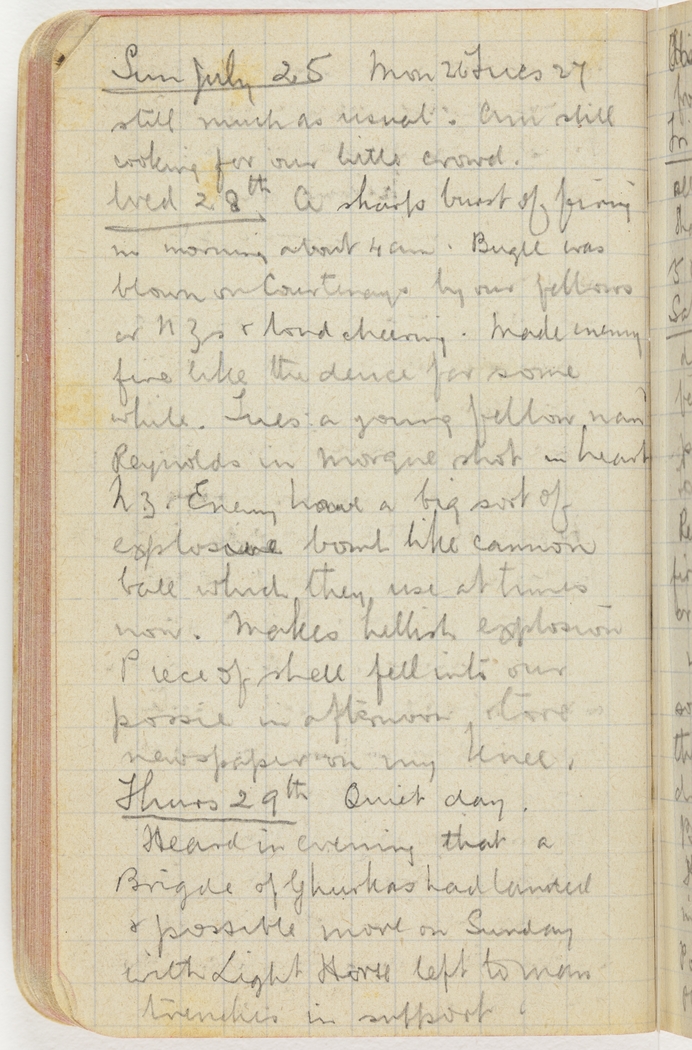 Sun July 25 Mon 26 Tues 27
still much as usual. Am still
cooking for our little crowd.
Wed 28th A sharp burst of firing
in morning about 4 am. Bugle was
blown on Courtenays by our fellows
or N Zs & loud cheering. Made enemy
fire like the deuce for some
while. Tues: a young fellow nam
Reynolds in morgue shot in heart
N Z. Enemy have a big sort of
explosive bomb like cannon
ball which they use at times
now. Makes hellish explosion
Piece of shell fell into our
possie in afternoon, tore
newspaper on my knee.
Thurs 29th Quiet day.
Heard in evening that a
Brigde of Ghurkas had landed
& possible move on Sunday
with Light Horse left to man
trenches in support